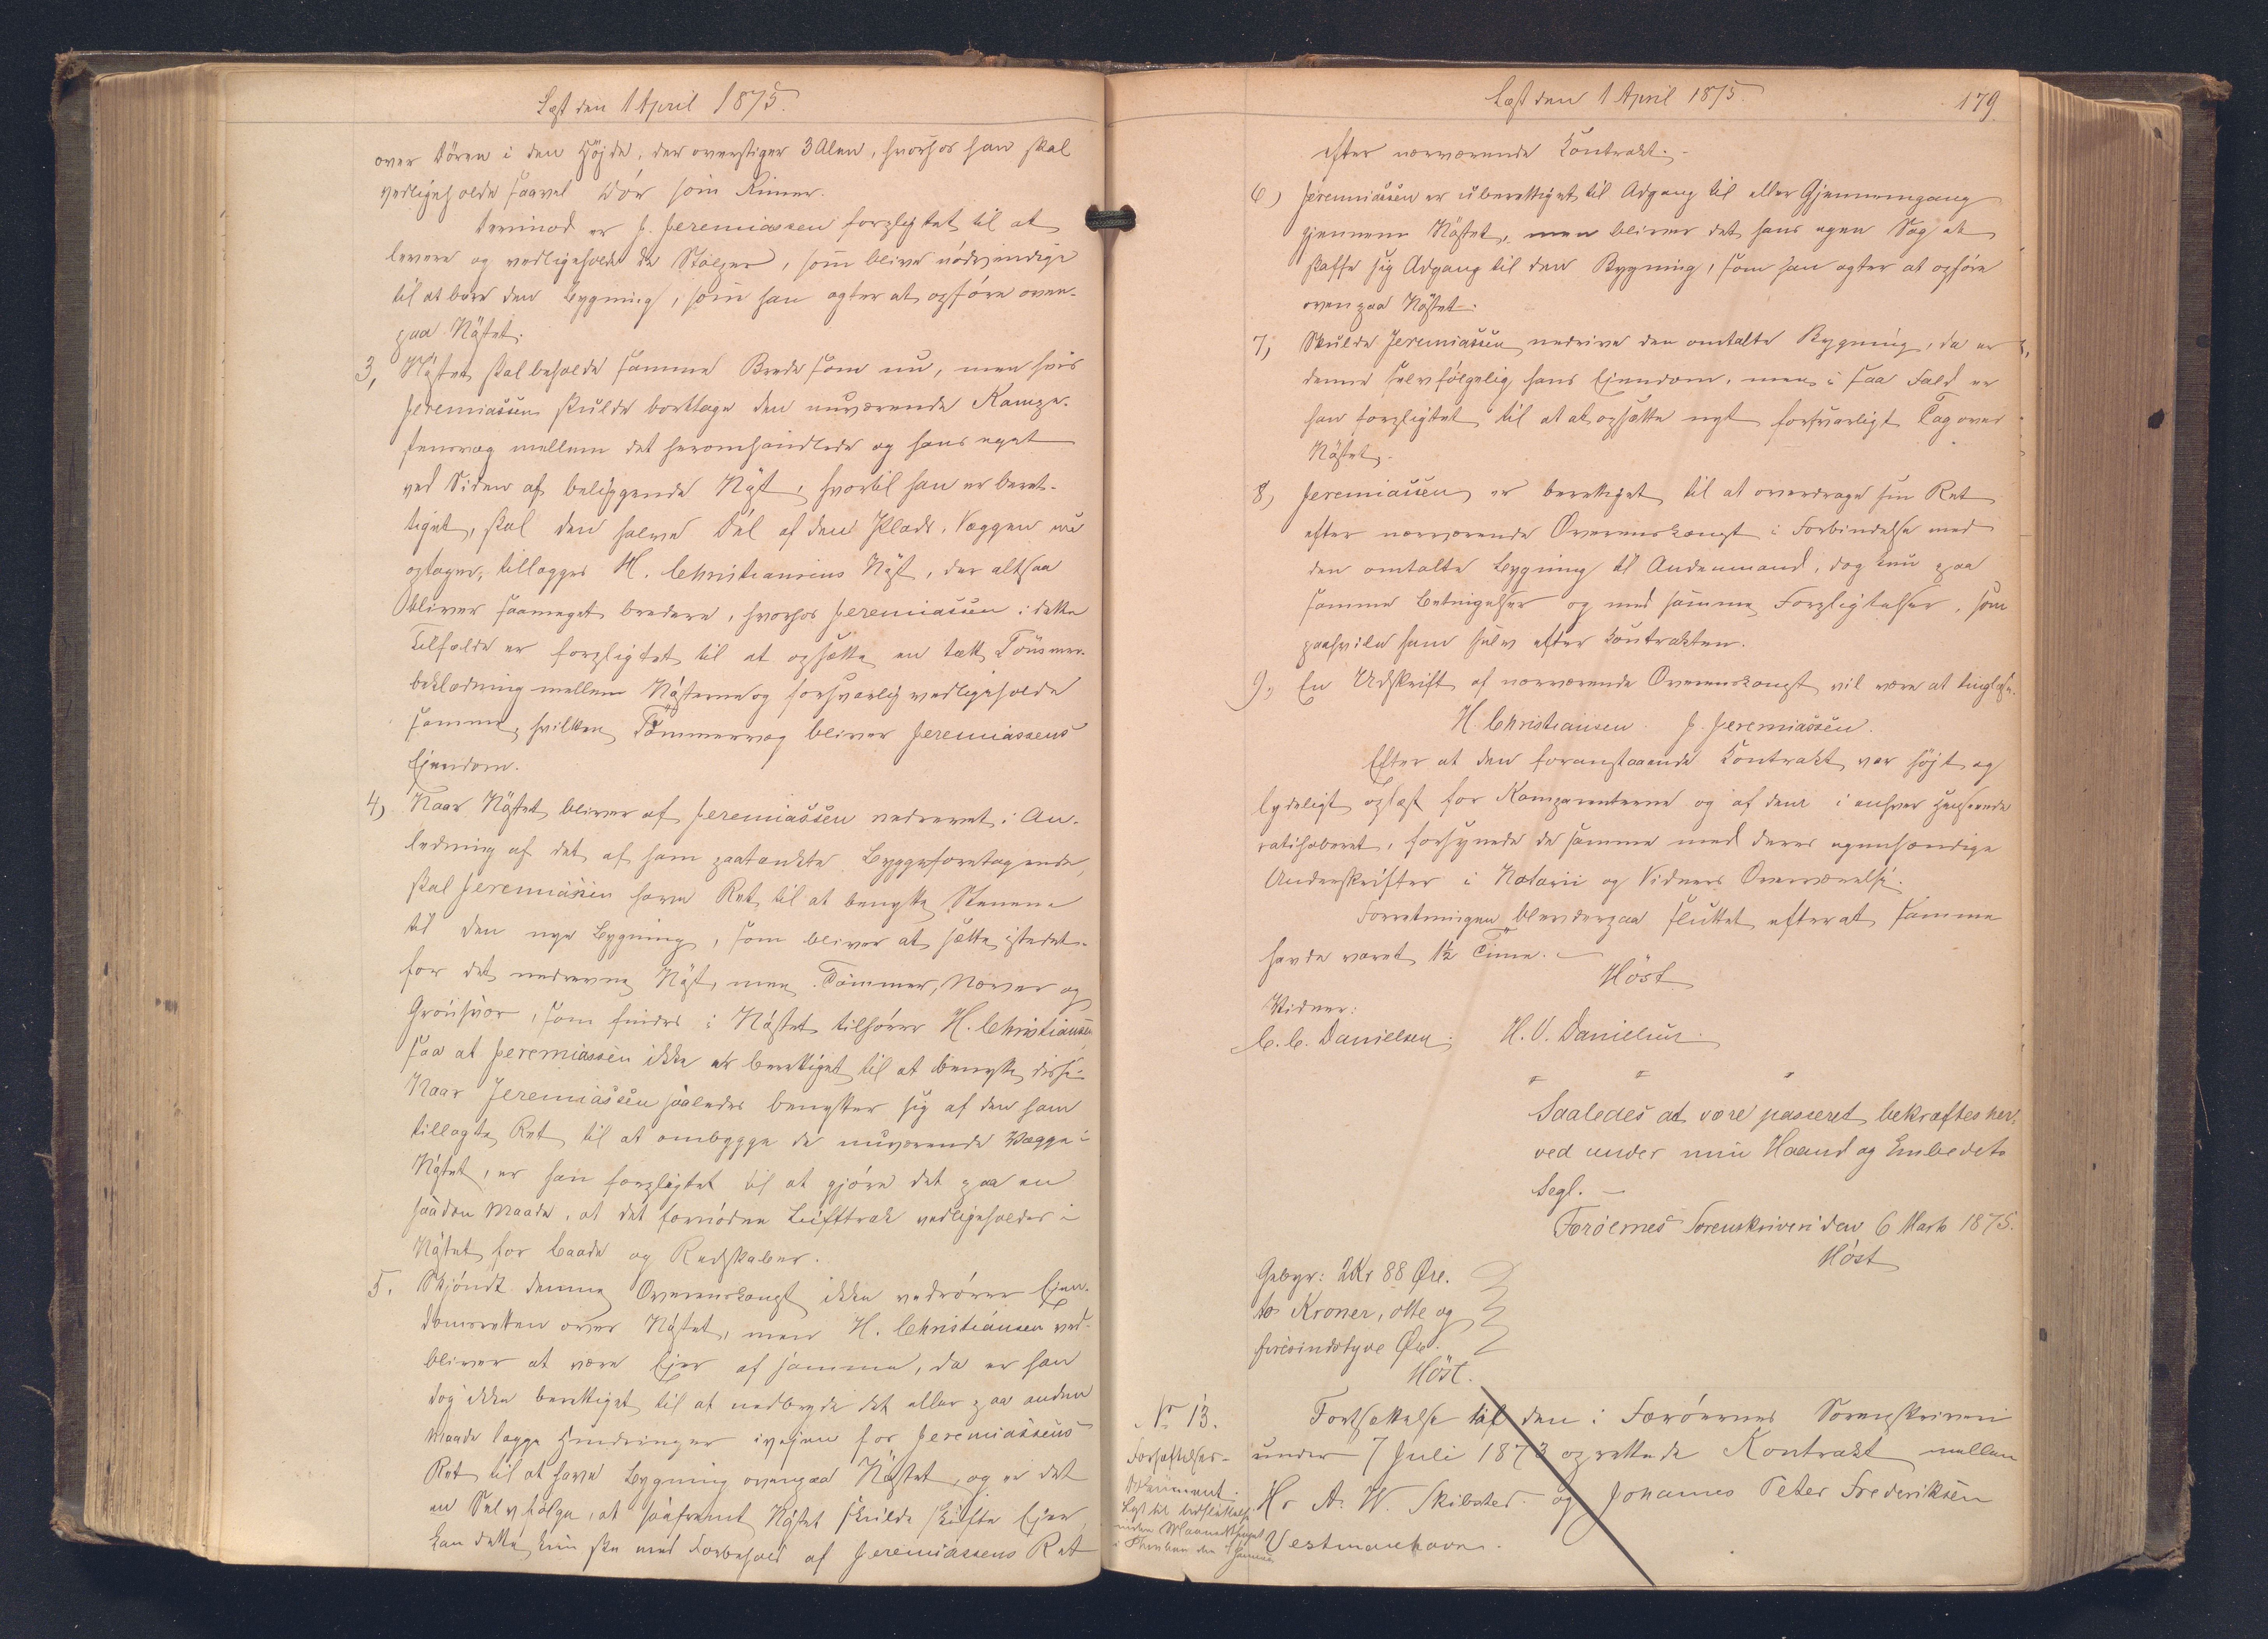 Læst den 1 April 1875.
over Døren i den Højde, der overstiger 3 Alen, hvorhos han skal
vedligeholde saavel Dør som Rimer.
Derimod er J. Jeremiassen forpligtet til at
levere og vedligeholde de Stolper, som blive nødvendige
til at bære den Bygning, som han agter at opføre oven-
paa Nøstet.
3, Nøstet skal beholde samme Brede som nu, men hvis
Jeremiassen skulde borttage den nuværende Kampe-
stensvæg mellem det heromhandlede og hans eget
ved Siden af beliggende Nøst, hvortil han er beret-
tiget, skal den halve Del af den Plads, Væggen nu
optager, tillægges H. Christiansens Nøst, der altsaa
bliver saameget bredere, hvorhos Jeremiassen i dette
Tilfælde er forpligtet til at opsætte en tæt Tømmer-
beklædning mellem Nøsterne og forsvarlig vedligeholde
samme, hvilken Tømmervæg bliver Jeremiassens
Ejendom.
4) Naar Nøstet bliver af Jeremiassen nedrevet i An-
ledning af det af ham paatænkte Byggeforetagende,
skal Jeremiassen have Ret til at benytte Stenene
til den nye Bygning, som bliver at sætte istedet-
for det nedrevne Nøst, men Tømmer, Næver og
Grønsvær, som findes i Nøstet tilhører H. Christiansen
saa at Jeremiassen ikke er berettiget til at benytte disse.
Naar Jeremiassen saaledes benytter sig af den ham
tillagte Ret til at ombygge de nuværende Vægge i
Nøstet, er han forpligtet til at gjøre det paa en
saadan Maade, at det fornødne Lufttræk vedligeholdes i
Nøstet for Baade og Redskaber.
5. Skjøndt denne Overenskomst ikke vedrører Ejen-
domsretten over Nøstet, men H. Christiansen ved-
bliver at være Ejer af samme, da er han
dog ikke berettiget til at nedbryde det eller paa anden
Maade lægge Hindringer ivejen for Jeremiassens
Ret til at have Bygning ovenpaa Nøstet, og er det
en Selvfølge, at saafremt Nøstet skulde skifte Ejer,
kan dette kun ske med Forbehold af Jeremiassens Ret
Læst den 1 April 1875.
179
efter nærværende Kontrakt.
6) Jeremiassen er uberettiget til Adgang til eller Gjennemgang
gjennem Nøstet, men bliver det hans egen Sag at
skaffe sig Adgang til den Bygning, som han agter at opføre
ovenpaa Nøstet.
7, Skulde Jeremiassen nedrive den omtalte Bygning, da er
denne selvfølgelig hans Ejendom, men i saa Fald er
han forpligtet til at at opsætte nyt forsvarligt Tag over
Nøstet.
8, Jeremiassen er berettiget til at overdrage sin Ret
efter nærværende Overenskomst i Forbindelse med
den omtalte Bygning til Andenmand, dog kun paa
samme Betingelser og med samme Forpligtelser, som
paahvile ham selv efter Kontrakten.
9, En Udskrift af nærværende Overenskomst vil være at tinglæse.
H. Christiansen J. Jeremiassen.
Efter at den foranstaaende Kontrakt var højt og
lydeligt oplæst for Komparenterne og af dem i enhver Henseende
ratihaberet, forsynede de samme med deres egenhændige
Underskrifter i Notarii og Vidners Overværelse.
Forretningen blev derpaa sluttet efterat samme
havde varet 1½ Time.
Høst
Vidner:
C. C. Danielsen. H. O. Danielsen.
" " "
Saaledes at være passeret bekræftes her-
ved under min Haand og Embedets
Segl. —
Færøernes Sorenskriveri den 6 Marts 1875.
Høst
Gebyr: 2 Kr 88 Øre.
to Kroner, otte og
firesindstyve Øre.
Høst.
No 13.
Forhæftelses-
Dokument.
Lyst til Udslettelse
inden Maanedstinget
i Thorshavn den Januar
Fortsættelse til den i Færøernes Sorenskriveri
under 7 Juli 1873 oprettede Kontrakt mellem
Hr A. W. Skibsted og Johannes Peter Frederiksen
Vestmanhavn.